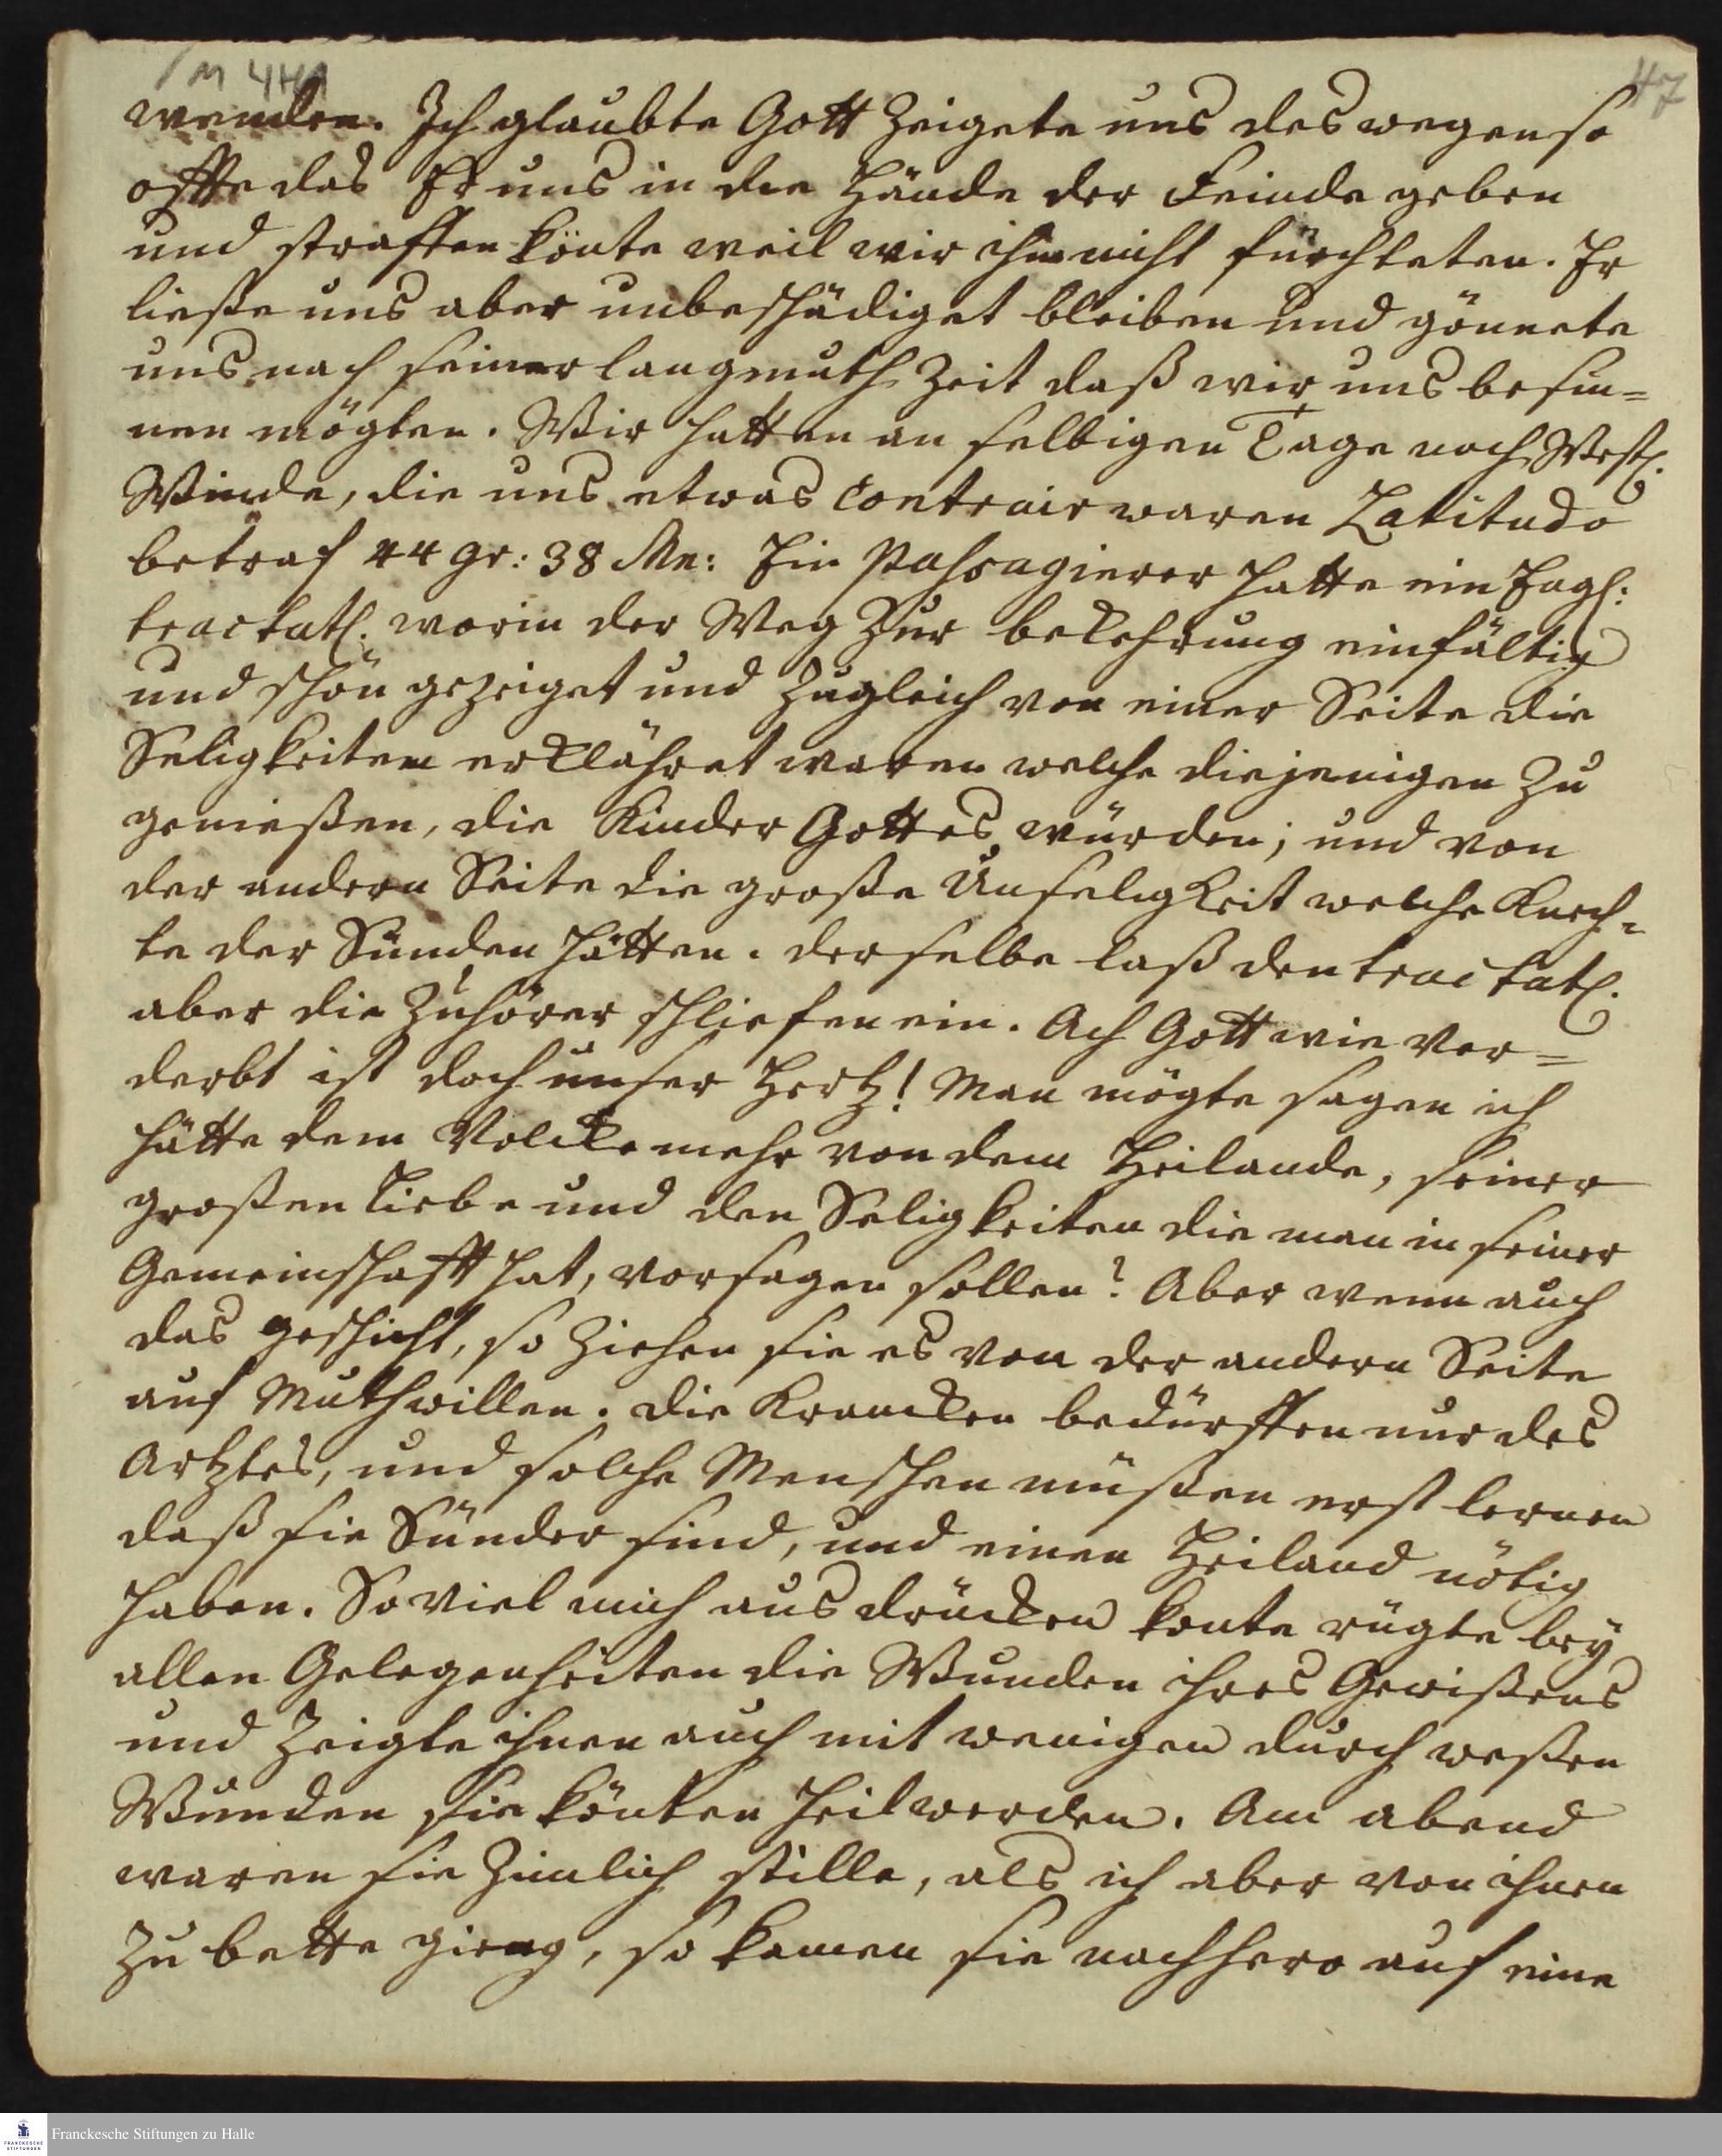 M 4H1
47
wenden. Ich glaubte Gott Zeigete uns deswegen so
offte das Er uns in die Hände der Feinde geben
und straffen könte weil wir ihn nicht fürchteten. Er
ließe uns aber unbeschädiget bleiben und gönnete
uns nach seiner langmuth Zeit daß wir uns besin=
nen mögten. Wir hatten an selbigen Tage noch Westl.
Winde, die uns etwas contrair waren Latitudo
betraf 44 gr: 38 Mn: Ein Passagierer hatte ein Engl:
tractatl. worin der Weg Zur bekehrung einfältig
und schön gezeiget und Zugleich von einer Seite die
Seligkeiten erklähret waren welche diejenigen Zu
genießen, die Kinder Gottes würden; und von
der andern Seite die große Unseligkeit welche Knech=
te der Sünden hätten. derselbe laß den tractatl.
aber die Zuhörer schliefen ein. Ach Gott wie ver=
derbt ist doch unser Hertz! Man mögte sagen ich
hätte dem Volcke mehr von dem Heilande, seiner
großen Liebe und den Seligkeiten die man in seiner
Gemeinschafft hat, vorsagen sollen? Aber wenn auch
das geschicht, so Ziehen sie es von der andern Seite
auf Muthwillen. die Krancken bedürffen nur des
Artztes, und solche Menschen müßen erst lernen
daß sie Sünder sind, und einen Heiland nötig
haben. So viel mich ausdrücken konte rügte bey
allen Gelegenheiten die Wunden ihres Gewißens
und Zeigte ihnen auch mit wenigen durch weßen
Wunden sie könten heil werden. Am abend
waren sie Zimlich stille, als ich aber von ihnen
Zu bette gieng, so kamen sie nachhero auf eine
FRANCKESCHE STIFTUNGEN
Franckesche Stiftungen zu Halle